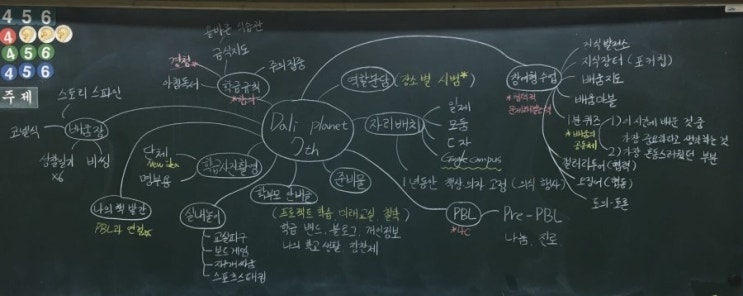 4 5 6
4
4 5 6
4 5 6
주 제
Dali planet
7th
올바른 식습관
급식지도
경청*
주의집중
아침독서
학급규칙
스토리 스파인
코넬식
배움장
성찰일기
x6
비씽
단체
new idea
명부용
학급사진촬영
나의 책 발간
PBL과 연결*
실내놀이
교실피구
보드게임
스포츠스태킹
학부모 안내물
(프로젝트 학습, 미래교실
학급 밴드, 블로그, 개인정보
준비물
역할분담
(장소별 시범*)
자리배치
일제
모둠
ㄷ자
Google campus
1년동안 책상 의자 고정 (의식 행사)
PBL
*4C
Pre-PBL
나눔, 진로
참여형 수업
지식발전소
지식장터 (포커칩)
배움지도
배움마블
1분 퀴즈
1) 이 시간에 배운 것 중
가장 중요하다고 생각하는 것
2) 가장 혼동스러웠던 부분
컬러라두어 (협력)
토의·토론